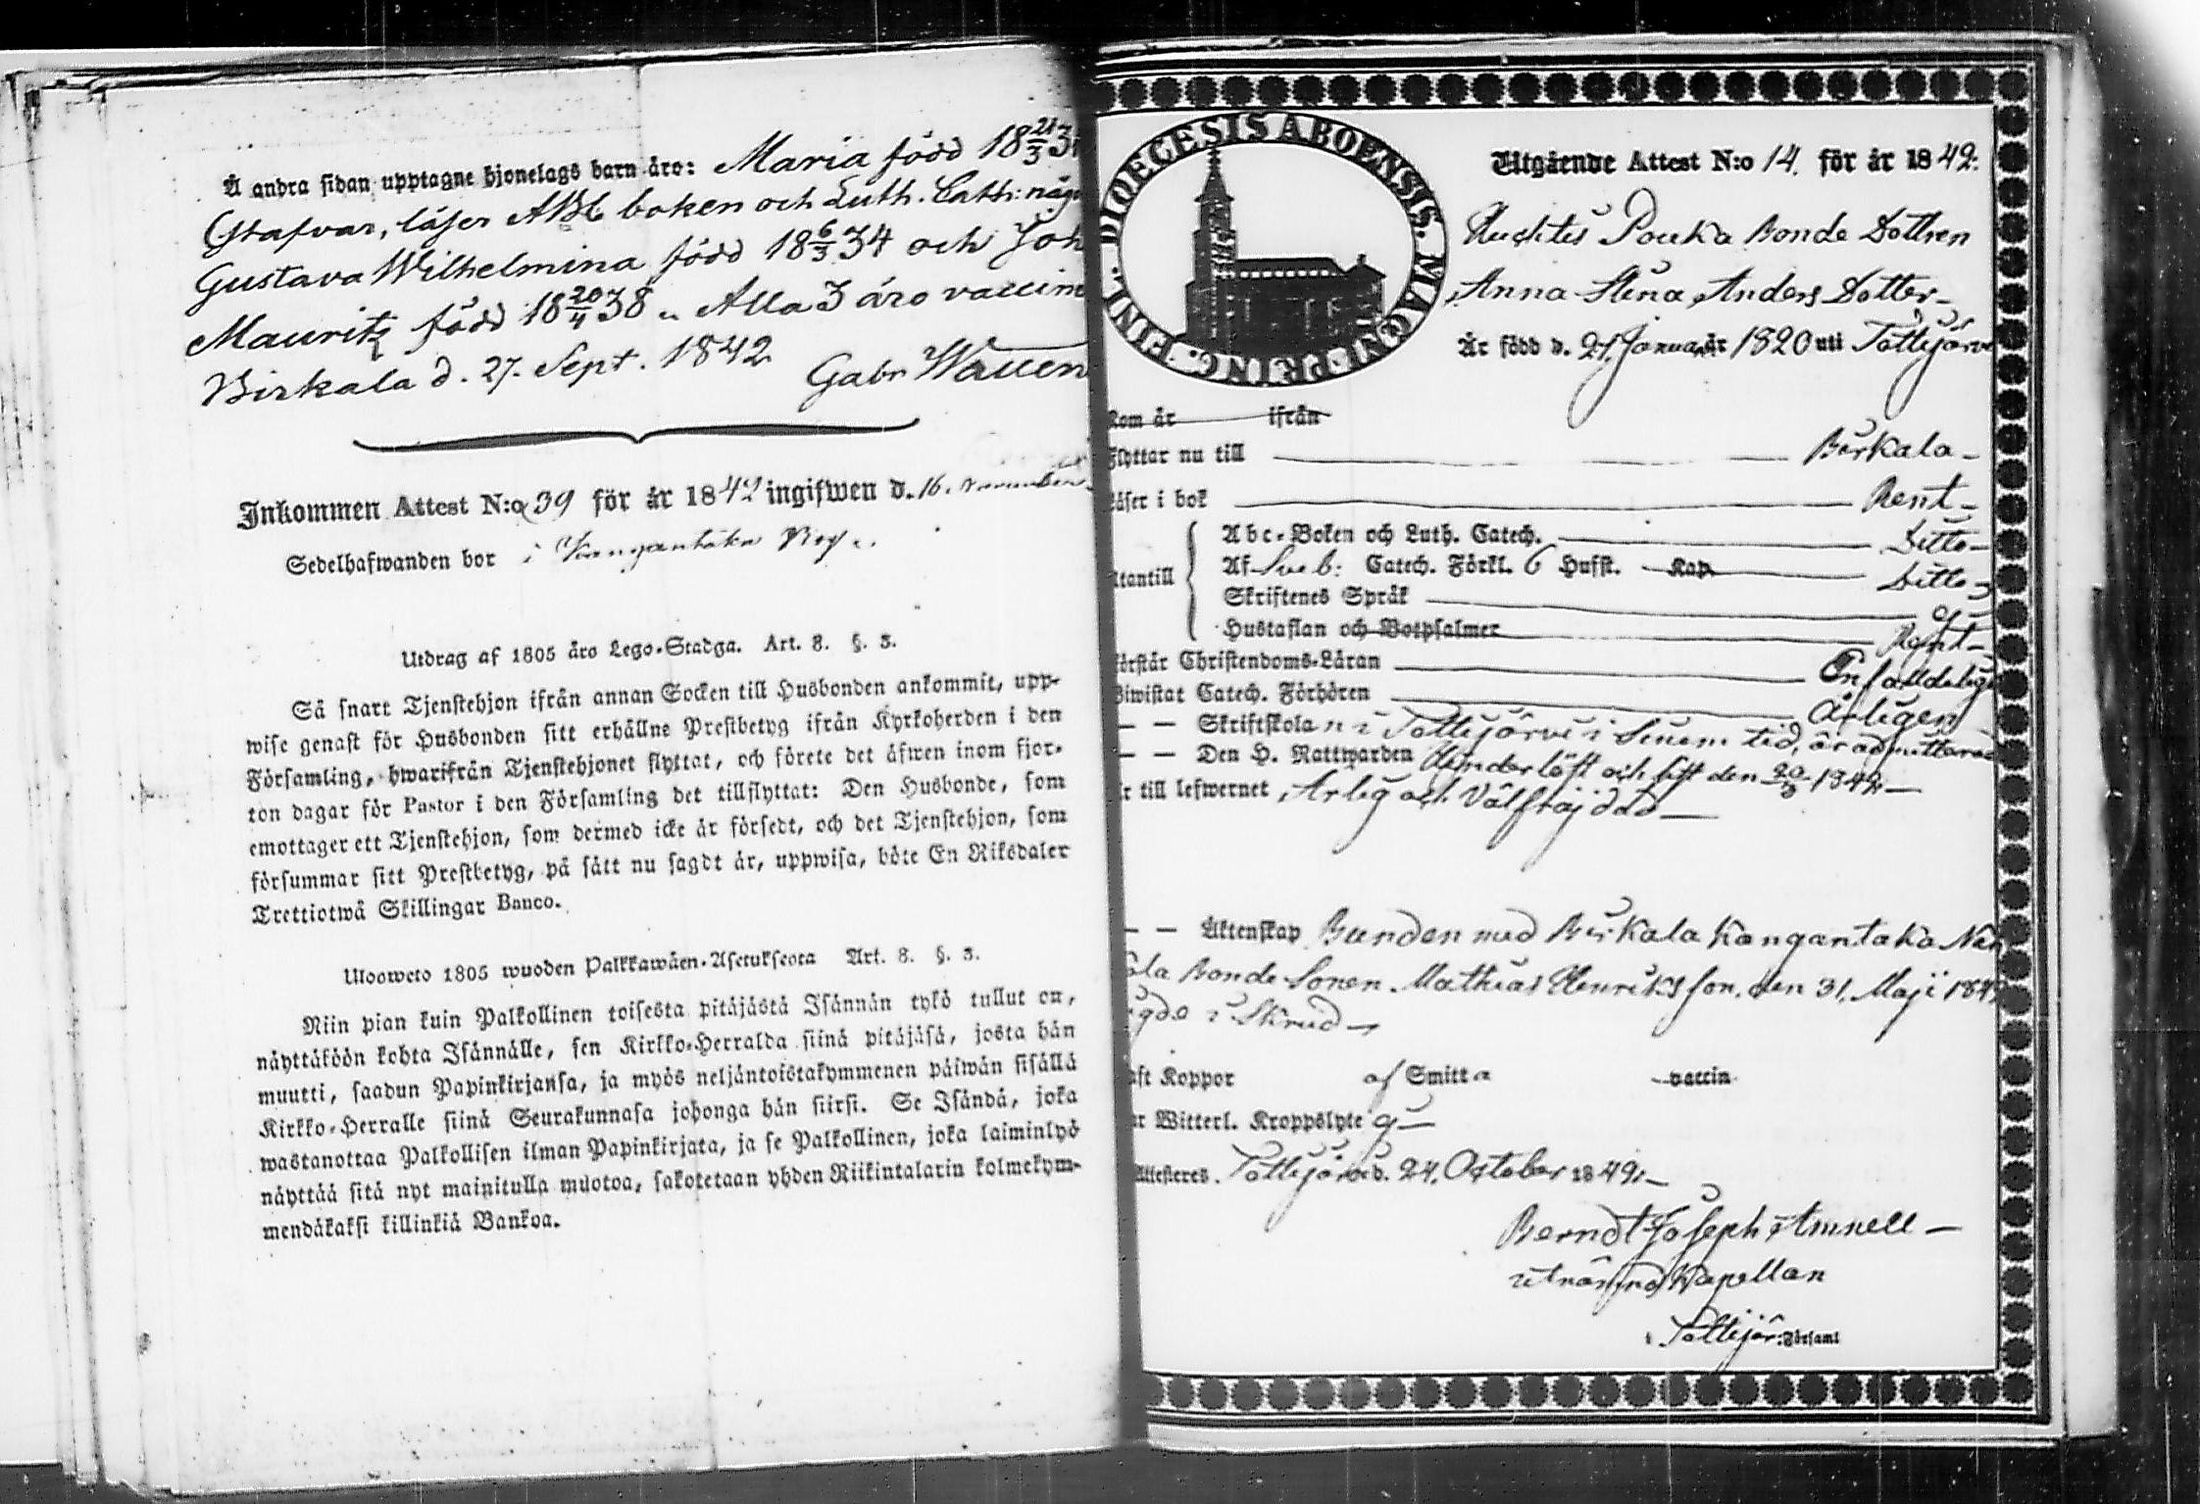 Å andra sidan upptagne hjonelags barn äro: Maria född 18 21/3 3
Stafvar, läser ABC boken och Luth. Cath: någ
Gustava Wilhelmina född 18 6/3 34 och Joh
Mauritz född 18 20/4 38 .. Alla 3 äro vaccin
Birkala d. 27. Sept. 1842
Gabr Wallen
Inkommen Attest N:o 39 för år 1842 ingifwen d. 16. November
Sedelhafwanden bor i
Utdrag af 1805 års Lego-Stadga. Art. 8. §. 3.
Så snart Tjenstehjon ifrån annan Socken till Husbonden ankommit, upp-
wise genast för Husbonden sitt erhållne Prestbetyg ifrån Kyrkoherden i den
Församling, hwarifrån Tjenstehjonet flyttat, och förete det äfwen inom fjor-
ton dagar för Pastor i den Församling det tillflyttat: Den Husbonde, som
emottager ett Tjenstehjon, som dermed icke är försedt, och det Tjenstehjon, som
försummar sitt Prestbetyg, på sätt nu sagdt är, uppwisa, böte En Riksdaler
Trettiotwå Skillingar Banco.
Ulosweto 1805 wuoden Palkkawäen-Asetuksesta Art. 8. §. 3.
Niin pian kuin Palkollinen toisesta pitäjästä Isännän tykö tullut on,
näyttäköön kohta Isännälle, sen Kirkko-Herralda siinä pitäjäsä, josta hän
muutti, saadun Papinkirjansa, ja myös neljäntoistakymmenen päiwän sisällä
Kirkko-Herralle siinä Seurakunnasa johonga hän siirsi. Se Isändä, joka
wastanottaa Palkollisen ilman Papinkirjata, ja se Palkollinen, joka laiminlyö
näyttää sitä nyt mainitulla muotoa, sakotetaan yhden Riikintalarin kolmekym-
mendäkaksi killinkiä Bankoa.
FINL. DIOECESIS ABOENSIS. MAGN. PRINC.
Utgående Attest N:o 14. för år 1842:
Pouka Bonde Dottren
Anna Stina Anders Dotter
Är född d. 21. Januari år 1820 uti Tottijärvi
Kom år ifrån
Flyttar nu till Birkala
Läser i bok Rent
Utantill
Abc-Boken och Luth. Catech. Ditto
Af Sveb: Catech. Förkl. 6 Hufst. Kap. Ditto
Skriftenes Språk
Hustaflan och Botpsalmer Rent
Förstår Christendoms-Läran Enfaldeligen
Biwistat Catech. Förhören Årligen
— — Skriftskolan i Tottijärvi i sinom tid, är admitterad
— — Den H. Nattwarden Hinderlöst och sist den 20/3 1842
Är till lefwernet Ärlig och Välfräjdad
— — Äktenskap Bunden med Birkala Kangantaka
Bonde Sonen Mathias Henriksson, den 31. Maji 184
Skrud
Haft Koppor af Smitta vaccin
Witterl. Kroppslyte ej
Attesteres. Tottijärvi d. 24. October 1842
Berndt Joseph
Kapellan
i Tottijär: Församl